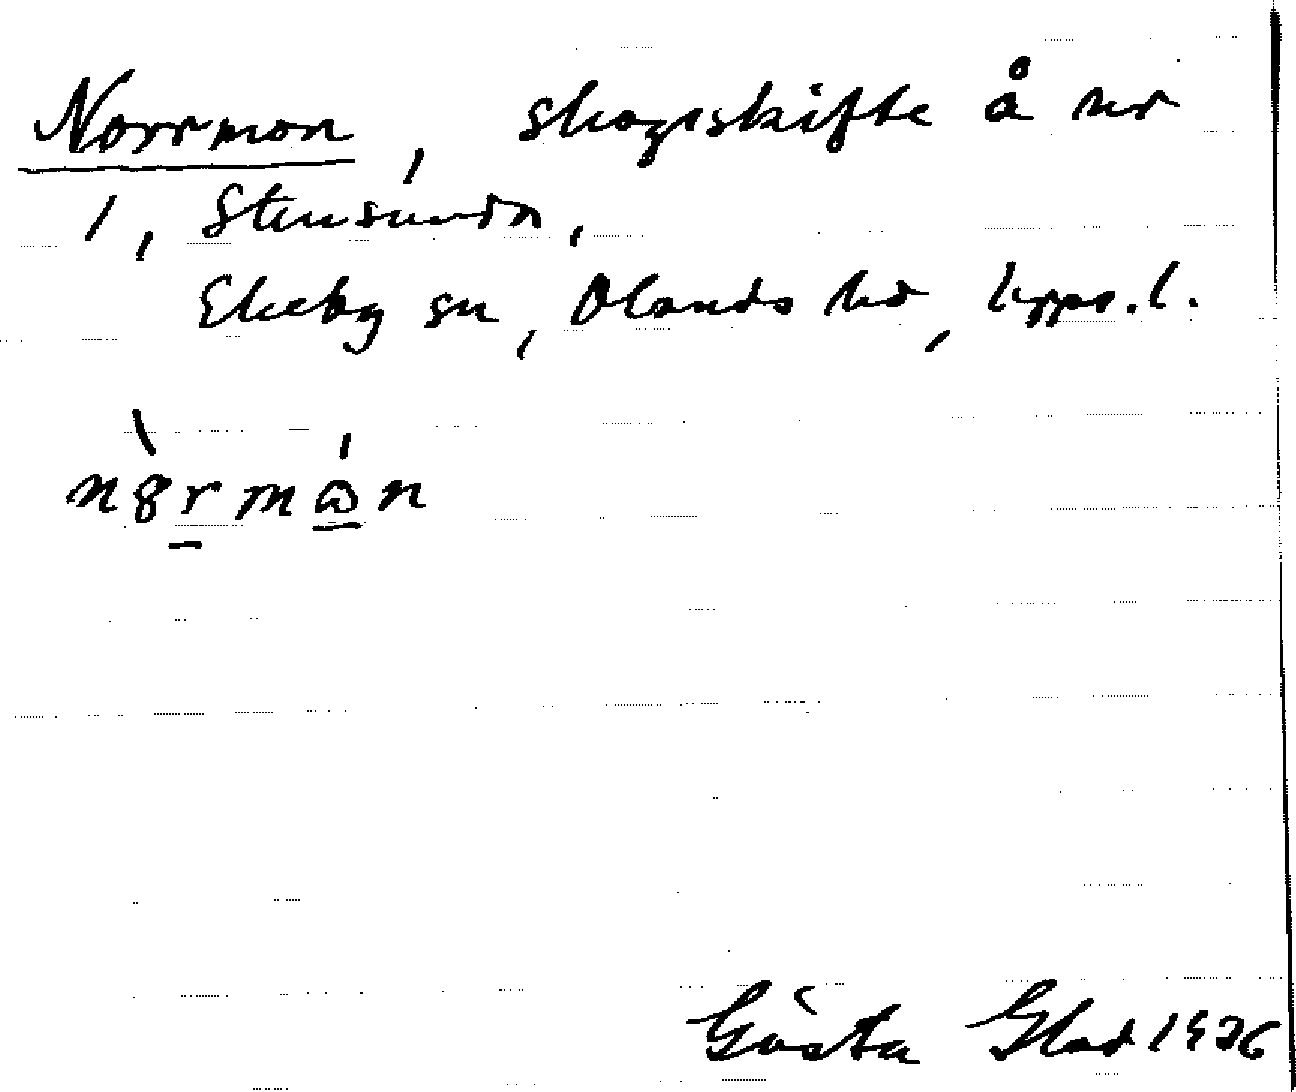 Norrmon, skogsskifte å nr
1, Stensunda,
Ekeby sn, Olands hd, Upps. l.
Gösta Glad 1926